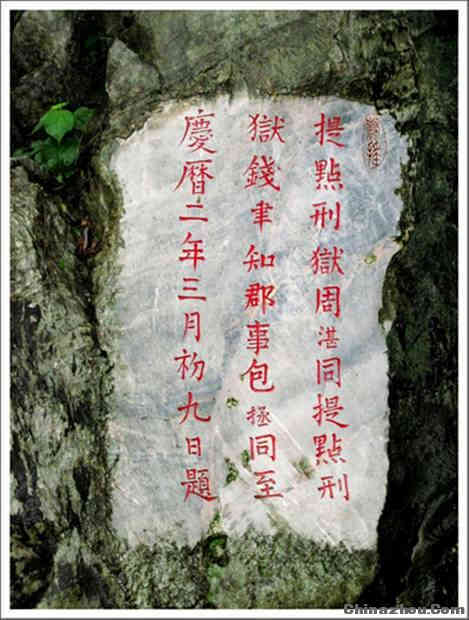 提點刑獄周湛同提點刑
獄錢聿知郡事包拯同至
慶曆二年三月初九日題
Chinazhou.Com